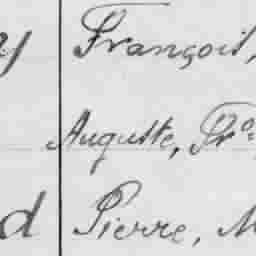 y François,
Auguste, Fr
d Pierre, M